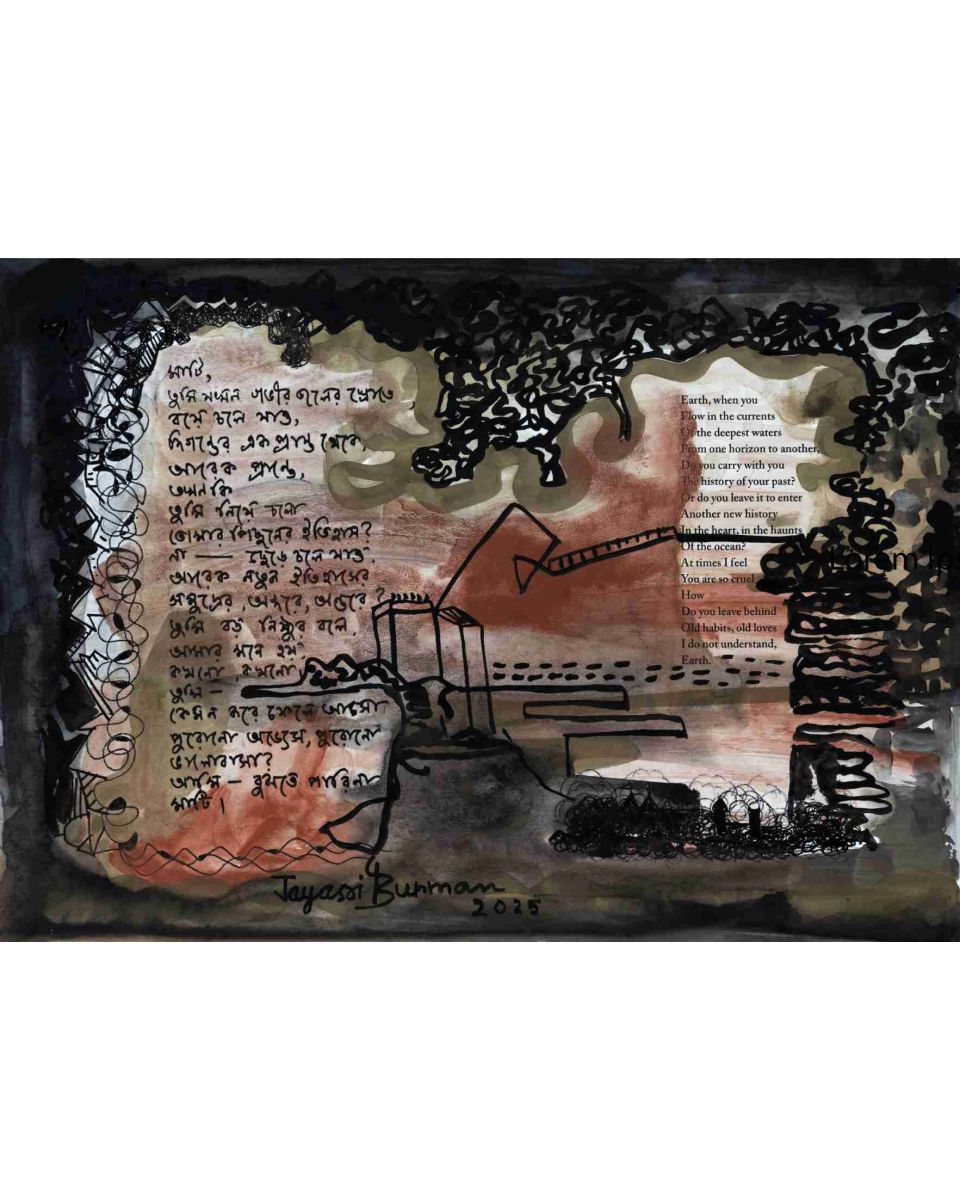 মাটি,
তুমি যখন গভীর জলের স্রোতে,
বয়ে চলে যাও,
দিগন্তের এক প্রান্ত থেকে,
আরেক প্রান্তে,
তখন কি
তুমি নিয়ে চলো
তোমার পিছনের ইতিহাস?
না — ছেড়ে চলে যাও
আরেক নতুন ইতিহাসের
সমুদ্রের, অন্দরে, অন্তরে?
তুমি বড় নিষ্ঠুর বলে,
আমার মনে হয়
কখনো কখনো
তুমি —
কেমন করে ফেলে আসো
পুরোনো অভ্যেস, পুরোনো
ভালোবাসা?
আমি — বুঝতে পারিনা
মাটি।
Earth, when you
Flow in the currents
Of the deepest waters
From one horizon to another,
Do you carry with you
The history of your past?
Or do you leave it to enter
Another new history
In the heart, in the haunts
Of the ocean?
At times I feel
You are so cruel
How
Do you leave behind
Old habits, old loves
I do not understand,
Earth.
Lorem Ip
Jayasri Burman
2025